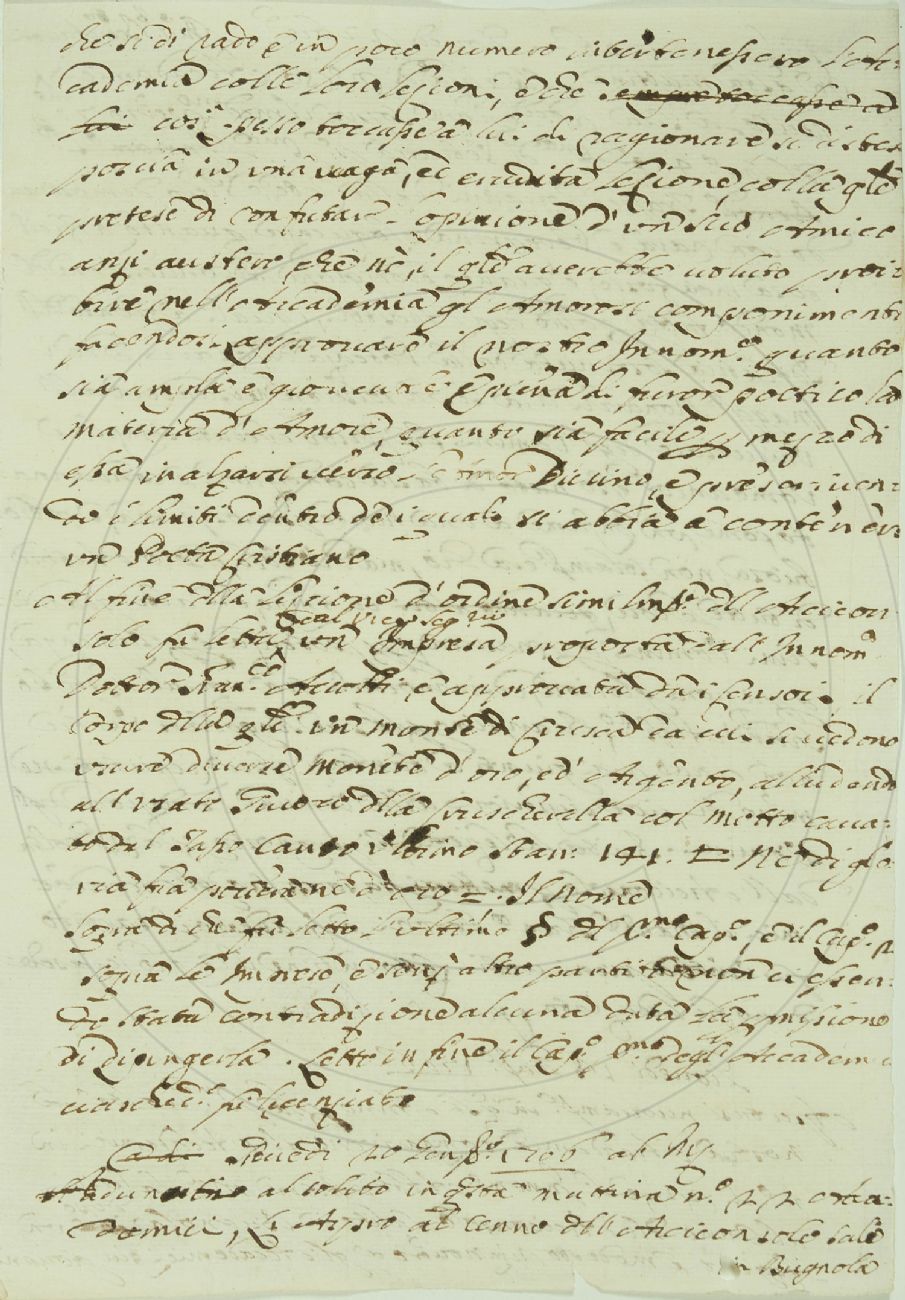 che sì di rado e in poco numero intertenessero l'Ac:
cademia colle loro lezioni, e che sempre toccasse a
lui così spesso toccasse a lui di ragionare, si distese
poscia in una vaga, ed erudita lezione, colla qle
pretese di confutare l'opinione d'un suo Amico
anzi austero, che nò, il qle averebbe voluto proi:
bire nell'Accademia gl'Amorosi componimenti
facendoci approvare il nostro Innom.o quanto
sia ampla e giovevole e piena di furor poetico la
materia d'Amore, quanto sia facile p mezzo di
essa inalzarsi verso l'Amor Divino, e prescriven:
do i limiti dentro de i quali si abbia a contenere
un Poeta Cristiano
Al fine dlla Lezione d'ordine simil dll'Arcicon
solo fu letta dal Vice Segrio un Impresa proposta dall'Innom.
Dottor Fran.co Accolti e approvata da i Censori, il
Corpo dlla qle un monte di Crusca da cui si vedono
uscire diverse monete d'oro, ed Argento, alludendo
all'usato dlla Cruscherella col Motto cava:
to dal Tasso Canto ultimo Stan: 141. = Nè di glo
ria fia povera nè d'oro =. Il Nome
Sopra di che fu letto l'ultimo § dl P.mo Cap.o, e il Cap.o 2
sopra le Imprese, e senz'altro partito non ci essen:
do stata contradizione alcuna data la pmissione
di dipingerla. Letto in fine il Cap.o P.mo degl'Accadem
ciasched.o fu licenziato
Adi Giovedì 20 1706 ab Inc.
Adunatisi al solito in qsta mattina n.o 22 Acca:
demici, L'Aspro al cenno dll'Arciconsolo salì
in Bugnola